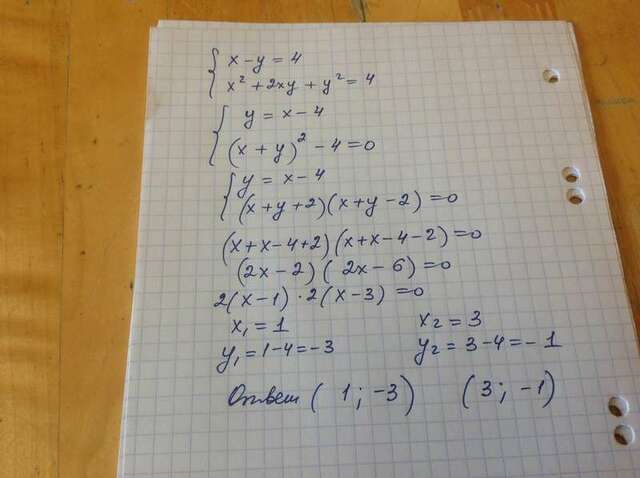 x - y = 4
x² + 2xy + y² = 4
y = x - 4
(x + y)² - 4 = 0
y = x - 4
(x + y + 2)(x + y - 2) = 0
(x + x - 4 + 2)(x + x - 4 - 2) = 0
(2x - 2)(2x - 6) = 0
2(x - 1) · 2(x - 3) = 0
x₁ = 1 x₂ = 3
y₁ = 1 - 4 = -3 y₂ = 3 - 4 = -1
Ответ (1; -3) (3; -1)